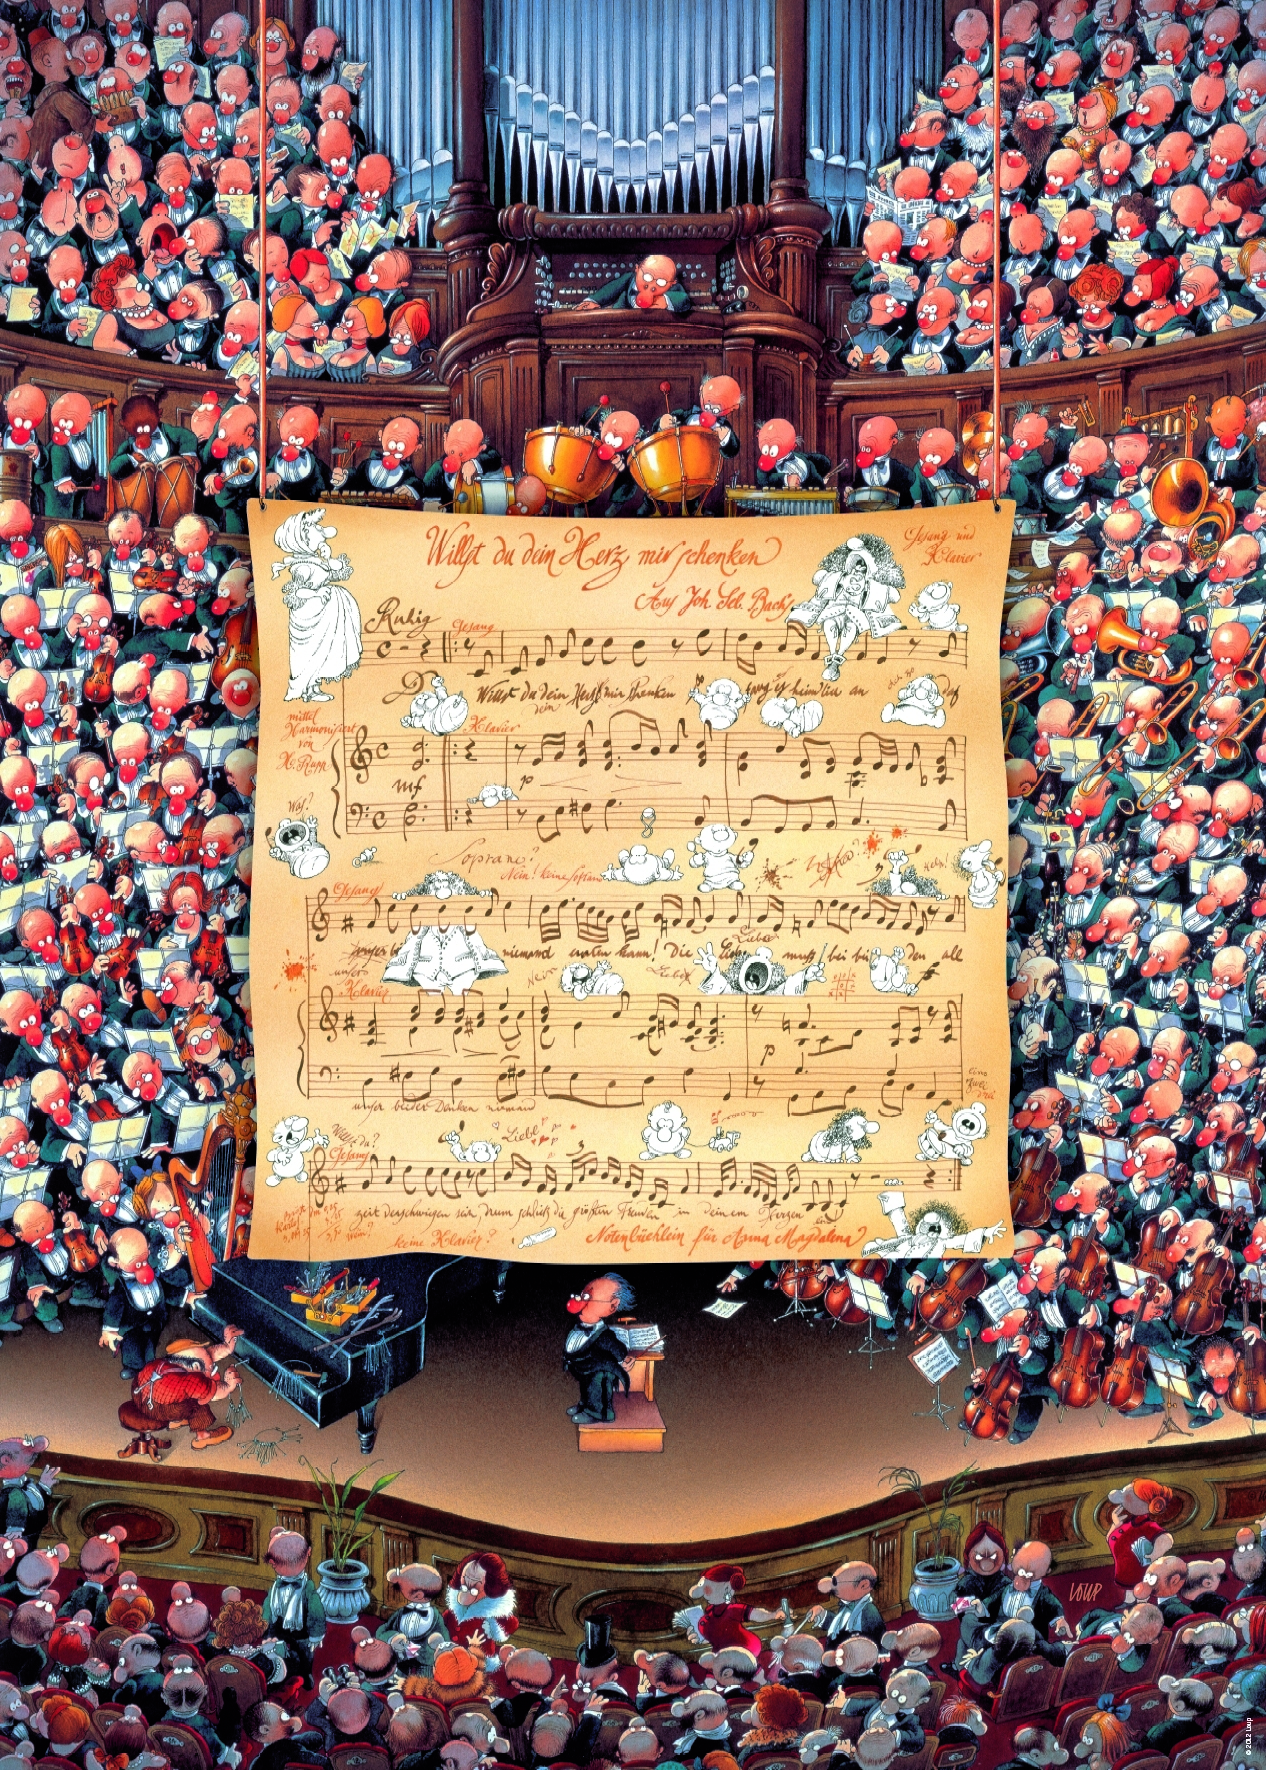 Willst du dein Herz mir schenken
Gesang und
Klavier
Aus Joh. Seb. Bach's
Ruhig
Gesang
Willst du dein Herz mir schenken
dein
fang es heimlich an
daß
Klavier
mittel
Harmonisiert
von
H. Rupp
mf
p
Was?
Soprano?
Nein! keine Soprano
Help!
Gesang
unser
niemand erraten kann! Die Liebe muß bei bei den all
Liebe
Nein
Liebe
Klavier
p
eins
zwei
drei
unser beider Denken niemand
Willst du?
Liebe
Gesang
3
zeit verschwiegen sein, drum schließ die größten Freuden in deinem Herzen ein
keine Klavier?
Notenbüchlein für Anna Magdalena
LOUP
© 2012 Loup